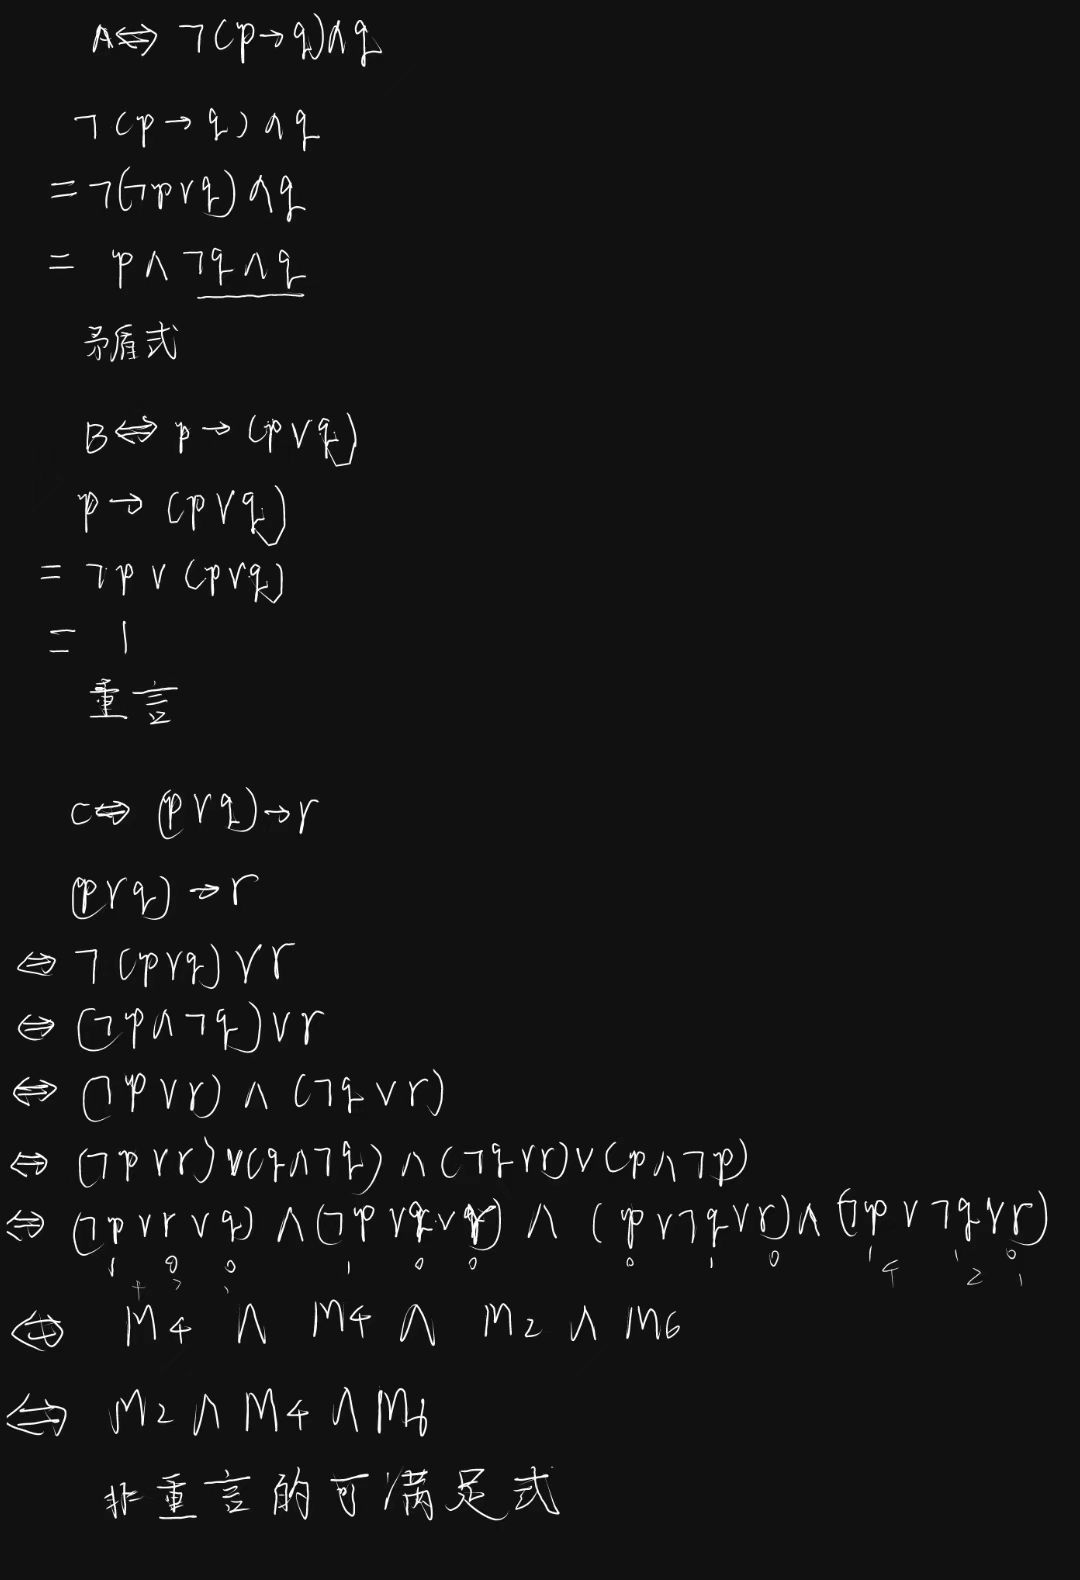 A⇔ ¬(p→q)∧q
¬(p→q)∧q
=¬(¬p∨q)∧q
= p∧¬q∧q
矛盾式
B⇔ p→(p∨q)
p→(p∨q)
= ¬p∨(p∨q)
= 1
重言
C⇔ (p∨q)→r
(p∨q)→r
⇔ ¬(p∨q)∨r
⇔ (¬p∧¬q)∨r
⇔ (¬p∨r)∧(¬q∨r)
⇔ (¬p∨r)∨(q∧¬q)∧(¬q∨r)∨(p∧¬p)
⇔ (¬p∨r∨q)∧(¬p∨q∨r)∧(p∨¬q∨r)∧(¬p∨¬q∨r)
1 0 0 1 0 0 0 1 0 1 1 0
4 2 1
⇔ M4 ∧ M4 ∧ M2 ∧ M6
⇔ M2∧M4∧M6
非重言的可满足式